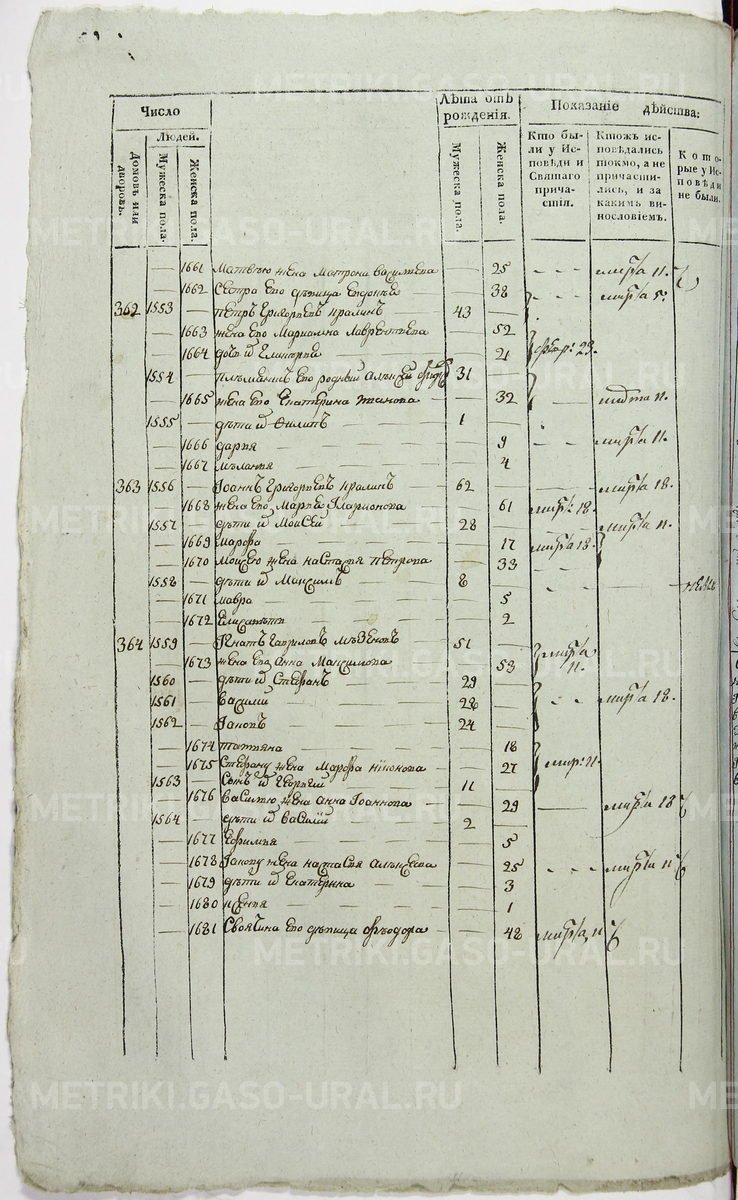 Число
Людей.
Домовъ или дворовъ.
Мужеска пола.
Женска пола.
Лѣта отъ рожденія.
Мужеска пола.
Женска пола.
Показаніе дѣйства:
Кто были у Исповѣди и Святаго причастія.
Ктожъ исповѣдались токмо, а не причастились, и за какимъ винословіемъ.
Которые у Исповѣди не были.
— 1661 Матвѣю жена Матрона — 25 - - - марта 11.
— 1662 Сестра его дѣвица Евдокѣя — 38 - - - марта 5.
362 1553 — Петръ Григорьевъ — 43 —
— 1663 жена его Мариамна Лаврентіева — 52
— 1664 дочь их — 21 29.
1554 — племянникъ его родный Алексѣй 31 —
— 1665 жена его Екатерина — 32 марта 11.
1555 — дѣти их Филипъ — 1 —
— 1666 дарья — 9 марта 11.
— 1667 меланія — 4
363 1556 — Іоаннъ Григорьевъ — 62 — марта 18.
— 1668 жена его Марья Иларионова — 61 марта 18.
1557 — дѣти их Моисей — 28 — марта 11.
— 1669 марфа — 17 марта 18.
— 1670 Моисею жена настасья петрова — 33
1558 — дѣти их Максимъ — 8 —
— 1671 мавра — 5
— 1672 Елисавета — 2
364 1559 — Игнатъ Гавриловъ — 51 — марта 11.
— 1673 жена его Анна Максимова — 53
1560 — дѣти их Стефанъ — 29 —
1561 — василий — 28 — - - марта 18.
1562 — Іаковъ — 24 —
— 1674 татьяна — 18
— 1675 Стефану жена Марфа — 27 мар: 11.
1563 — сынъ их Георгий — 11 —
— 1676 василью жена анна Іоаннова — 29 — марта 18
1564 — дѣти их василий — 2 —
— 1677 Ефимия — 5
— 1678 Іакову жена настасья алексѣева — 25 - - - марта 11
— 1679 дѣти их екатерина — 3
— 1680 ксения — 1
— 1681 Своячина его дѣвица Феодора — 48 марта 11
METRIKI.GASO-URAL.RU